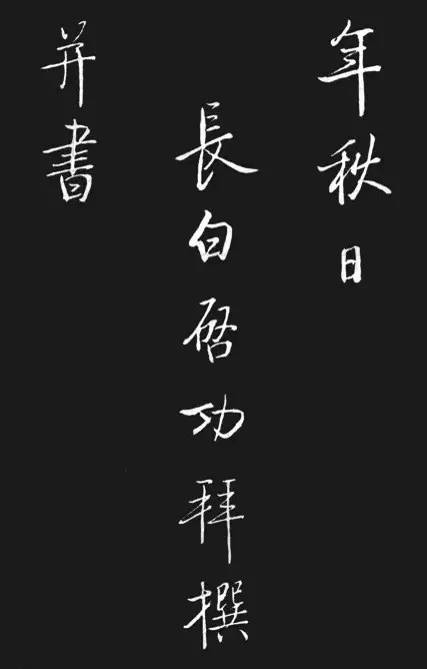 年秋日
長白啓功拜撰
并書